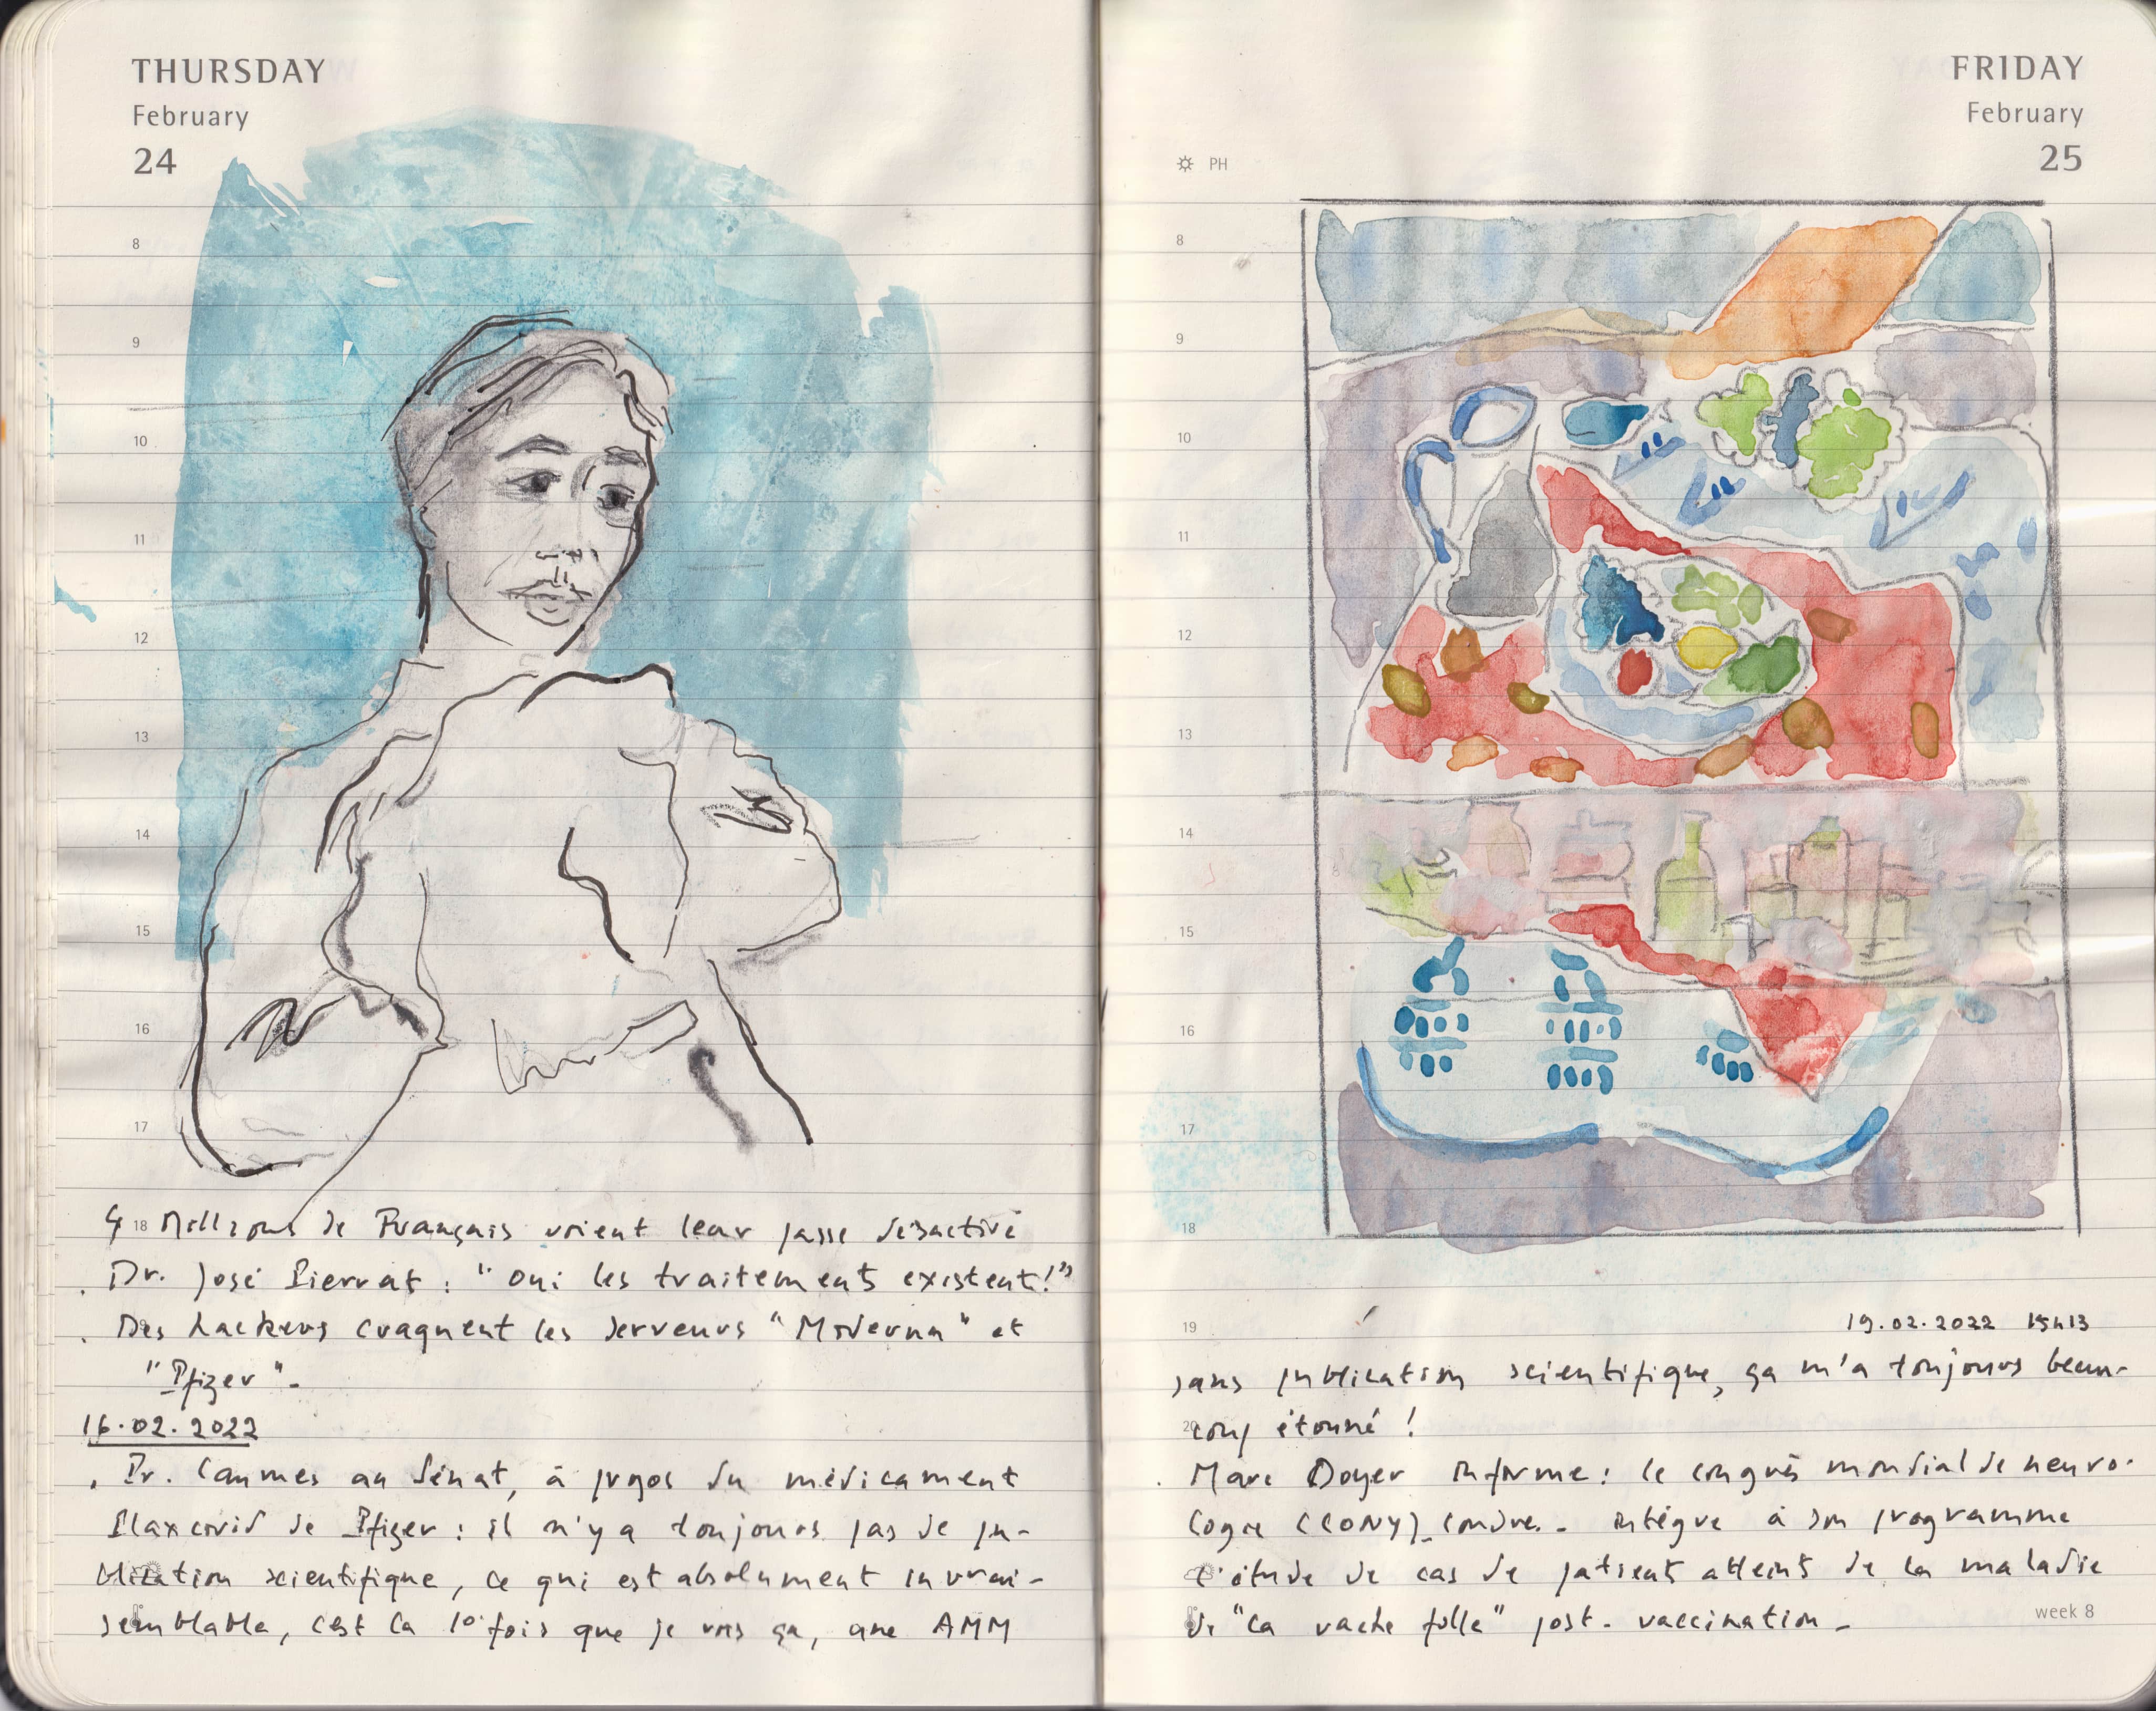 THURSDAY
February
24
8
9
10
11
12
13
14
15
16
17
18
4 Millions de Français voient leur passe désactivé
. Dr. José Pierrat : "Oui les traitements existent!"
. Des hackers craquent les serveurs "Moderna" et
"Pfizer"-
16.02.2022
. Pr. Caumes au Sénat, à propos du médicament
Plaxcovid de Pfizer : il n'y a toujours pas de pu-
blication scientifique, ce qui est absolument invrai-
semblable, c'est la 10° fois que je vois ça, une AMM
FRIDAY
February
25
PH
8
9
10
11
12
13
14
15
16
17
18
19
19.02.2022 15h13
sans publication scientifique, ça m'a toujours beau-
20
coup étonné !
. Marc Doyer informe : le congrès mondial de neuro-
logie (CONy) Londre. - intègre à son programme
l'étude de cas de patient atteint de la maladie
de "la vache folle" post-vaccination -
week 8